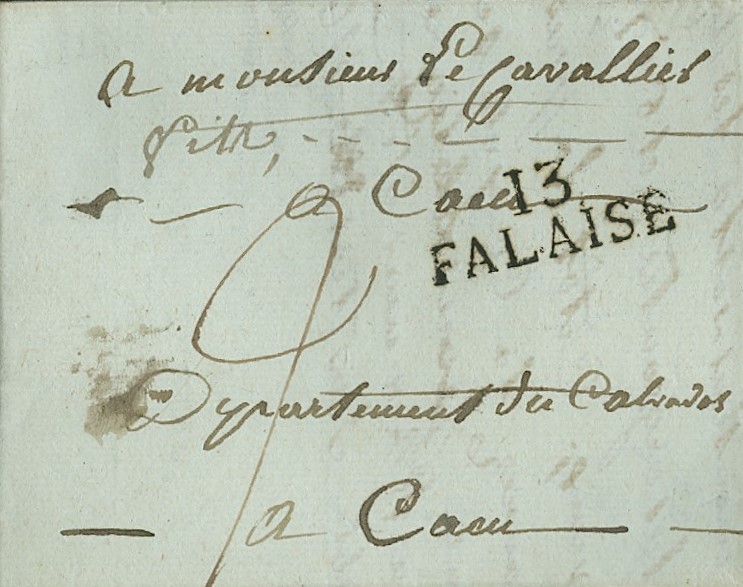 A monsieur Le Cavallier
a Caen
13
FALAISE
Departement du Calvados
a Caen